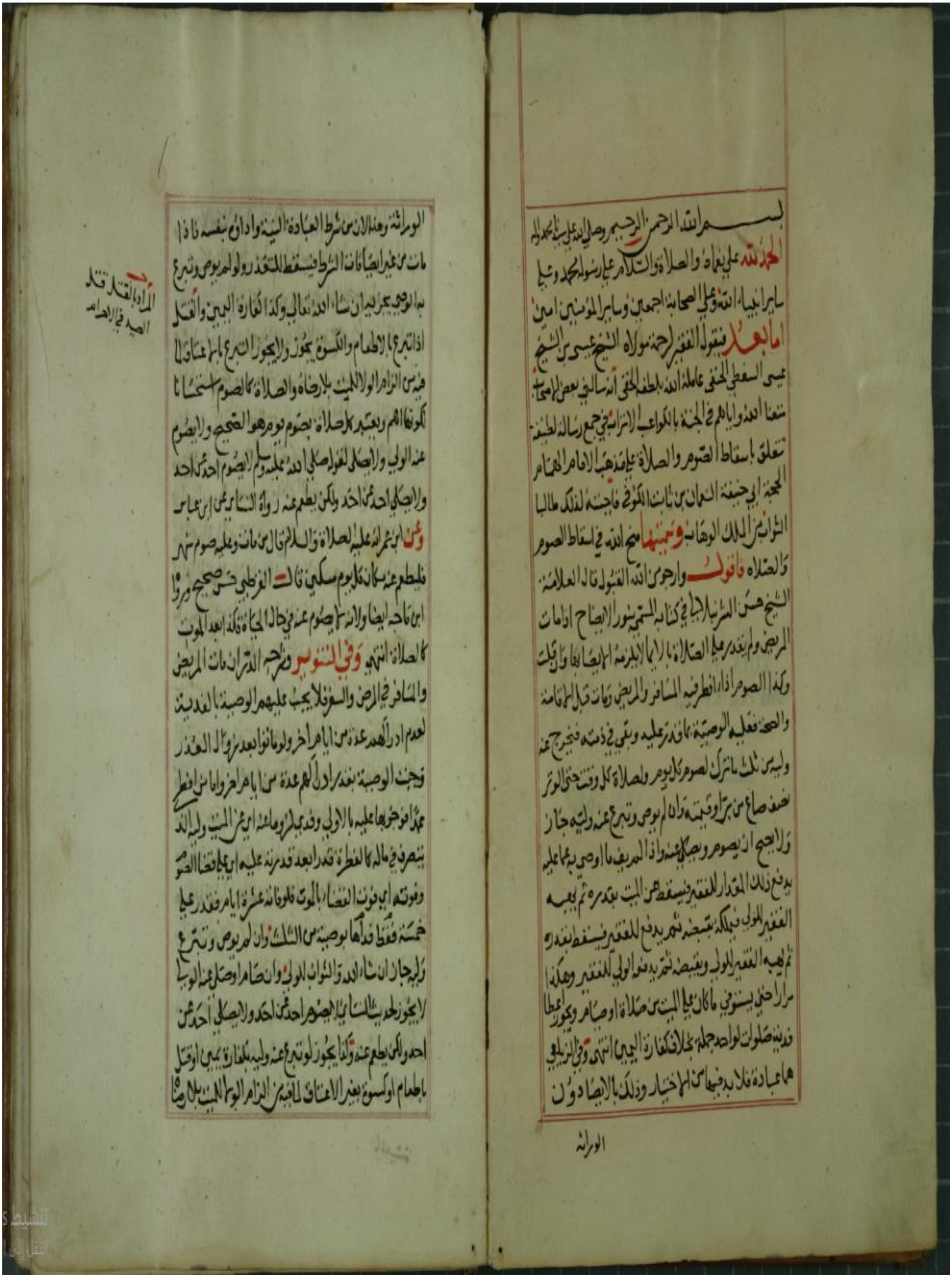 بسم الله الرحمن الرحيم وصلى الله على سيدنا محمد واله
الحمد لله على نعماه والصلاة والسلام على رسوله محمد وعلى
ساير انبياء الله وعلى الصحابة اجمعين وساير المومنين امين
اما بعد فيقول الفقير لرحمة مولاه الشيخ عيسى بن الشيخ
عيسى السفطي الحنفي عامله الله بلطفه الخفي انه سالني بعض
متعنا الله واياهم في الجنة بالكواعب الاتراب في جمع رسالة لطيفة
تتعلق باسقاط الصوم والصلاة على مذهب الامام الهمام
الحجة ابي حنيفة النعمان بن ثابت الكوفي فاجبته لذلك طالبا
الثواب من الملك الوهاب وسميتها منح الله في اسقاط الصوم
والصلاه فاقول وارجو من الله القبول قال العلامة
الشيخ حسن الشرنبلالي في كتابه المسمى بنور الايضاح اذا مات
المريض ولم يقدر على الصلاة بالايما لا يلزمه الايصا بها وان قلت
وكذا الصوم اذا افطر فيه المسافر والمريض وماتا قبل الاقامة
والصحة فعليه الوصية بما قدر عليه وبقي في ذمته فيخرج عنه
وليه من ثلث ما ترك لصوم كل يوم ولصلاة كل وقت حتى الوتر
نصف صاع من بر او قيمته وان لم يوص وتبرع عنه وليه جاز
ولا يصح ان يصوم ويصلي عنه واذا لم يف ما اوصى به عما عليه
يدفع ذلك المقدار للفقير فيسقط عن الميت بقدره ثم يهبه
الفقير للولي فيملكه بقبضه ثم يدفع للفقير فيسقط بقدره
ثم يهبه الفقير للولي ويقبضه ثم يدفعه الولي للفقير وهكذا
مرارا حتى يستوفي ما كان على الميت من صلاة او صيام ويجوز اعطا
فدية صلوات لواحد جملة بخلاف كفارة اليمين انتهى وفي الزيلعي
هما عبادة فلا بد فيهما من الاختيار وذلك بالايصا دون
الوراثة
الوراثة وهذا لان من شرط العبادة النية واداوه بنفسه فاذا
مات من غير ايصا فات الشرط فيسقط للتعذر ولو لم يوص وتبرع
به الوصي يجزيه ان شاء الله تعالى وكذا كفارة اليمين والقتل
اذا تبرع بالاطعام والكسوة يجوز ولا يجوز التبرع بالاعتاق لما
فيه من الزام الولا للميت بلا رضاه والصلاة كالصوم استحسانا
لكونها اهم ويعتبر كل صلاة بصوم يوم هو الصحيح ولا يصوم
عنه الولي ولا يصلي لقوله صلى الله عليه وسلم لا يصوم احد عن احد
ولا يصلي احد عن احد ولكن يطعم عنه رواه النسائي عن ابن عباس
وعن ابن عمر انه عليه الصلاة والسلام قال من مات وعليه صوم شهر
فليطعم عنه مكان كل يوم مسكين قالت القرطبي حسن صحيح ورواه
ابن ماجه ايضا ولانه لا يصوم عنه في حال الحياة فكذا بعد الموت
كالصلاة انتهى وفي التنوير وشرحه الدر ان مات المريض
والمسافر في المرض والسفر فلا يجب عليهم الوصية بالفدية
لعدم ادراكهم عدة من ايام اخر ولو ماتوا بعد زوال العذر
وجبت الوصية بقدر ادراكهم عدة من ايام اخر واما من افطر
عمدا فوجوبها عليه بالاولى وفدى لزوما عنه اي عن الميت وليه الذي
يتصرف في ماله كالفطرة قدرا بعد قدرته عليه اي على قضا الصوم
وفوته اي فوت القضاء بالموت فلو فاته عشرة ايام فقدر على
خمسة فقط فداها بوصية من الثلث وان لم يوص وتبرع
وليه جاز ان شاء الله والثواب للولي وان صام او صلى عنه الولي
لا يجوز لحديث النسائي لا يصوم احد عن احد ولا يصلي احد عن
احد ولكن يطعم عنه وكذا يجوز لو تبرع عنه وليه بكفارة يمين او قتل
باطعام او كسوة بغير الاعتاق لما فيه من الزام الولا للميت بلا رضاه
المراد بالقتل قتل
الصيد في الاحرام